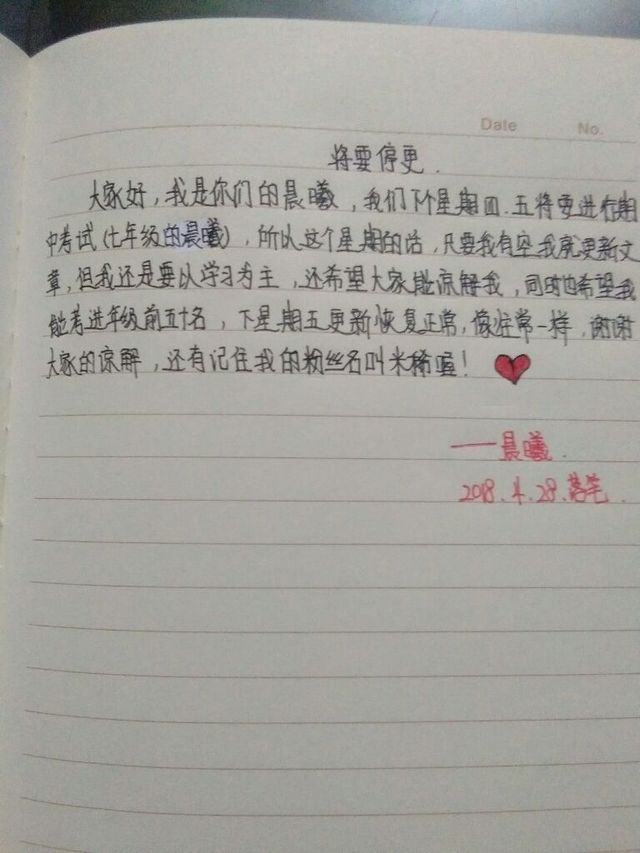 Date No.
将要停更.
大家好，我是你们的晨曦，我们下个星期四.五将要进行期
中考试(七年级的晨曦)，所以这个星期的话，只要我有空我就更新文
章，但我还是要以学习为主，还希望大家能谅解我，同时也希望我
能考进年级前五十名，下星期五更新恢复正常，像往常一样，谢谢
大家的谅解，还有记住我的粉丝名叫米稀喔！
——晨曦.
2018.4.28.落笔.